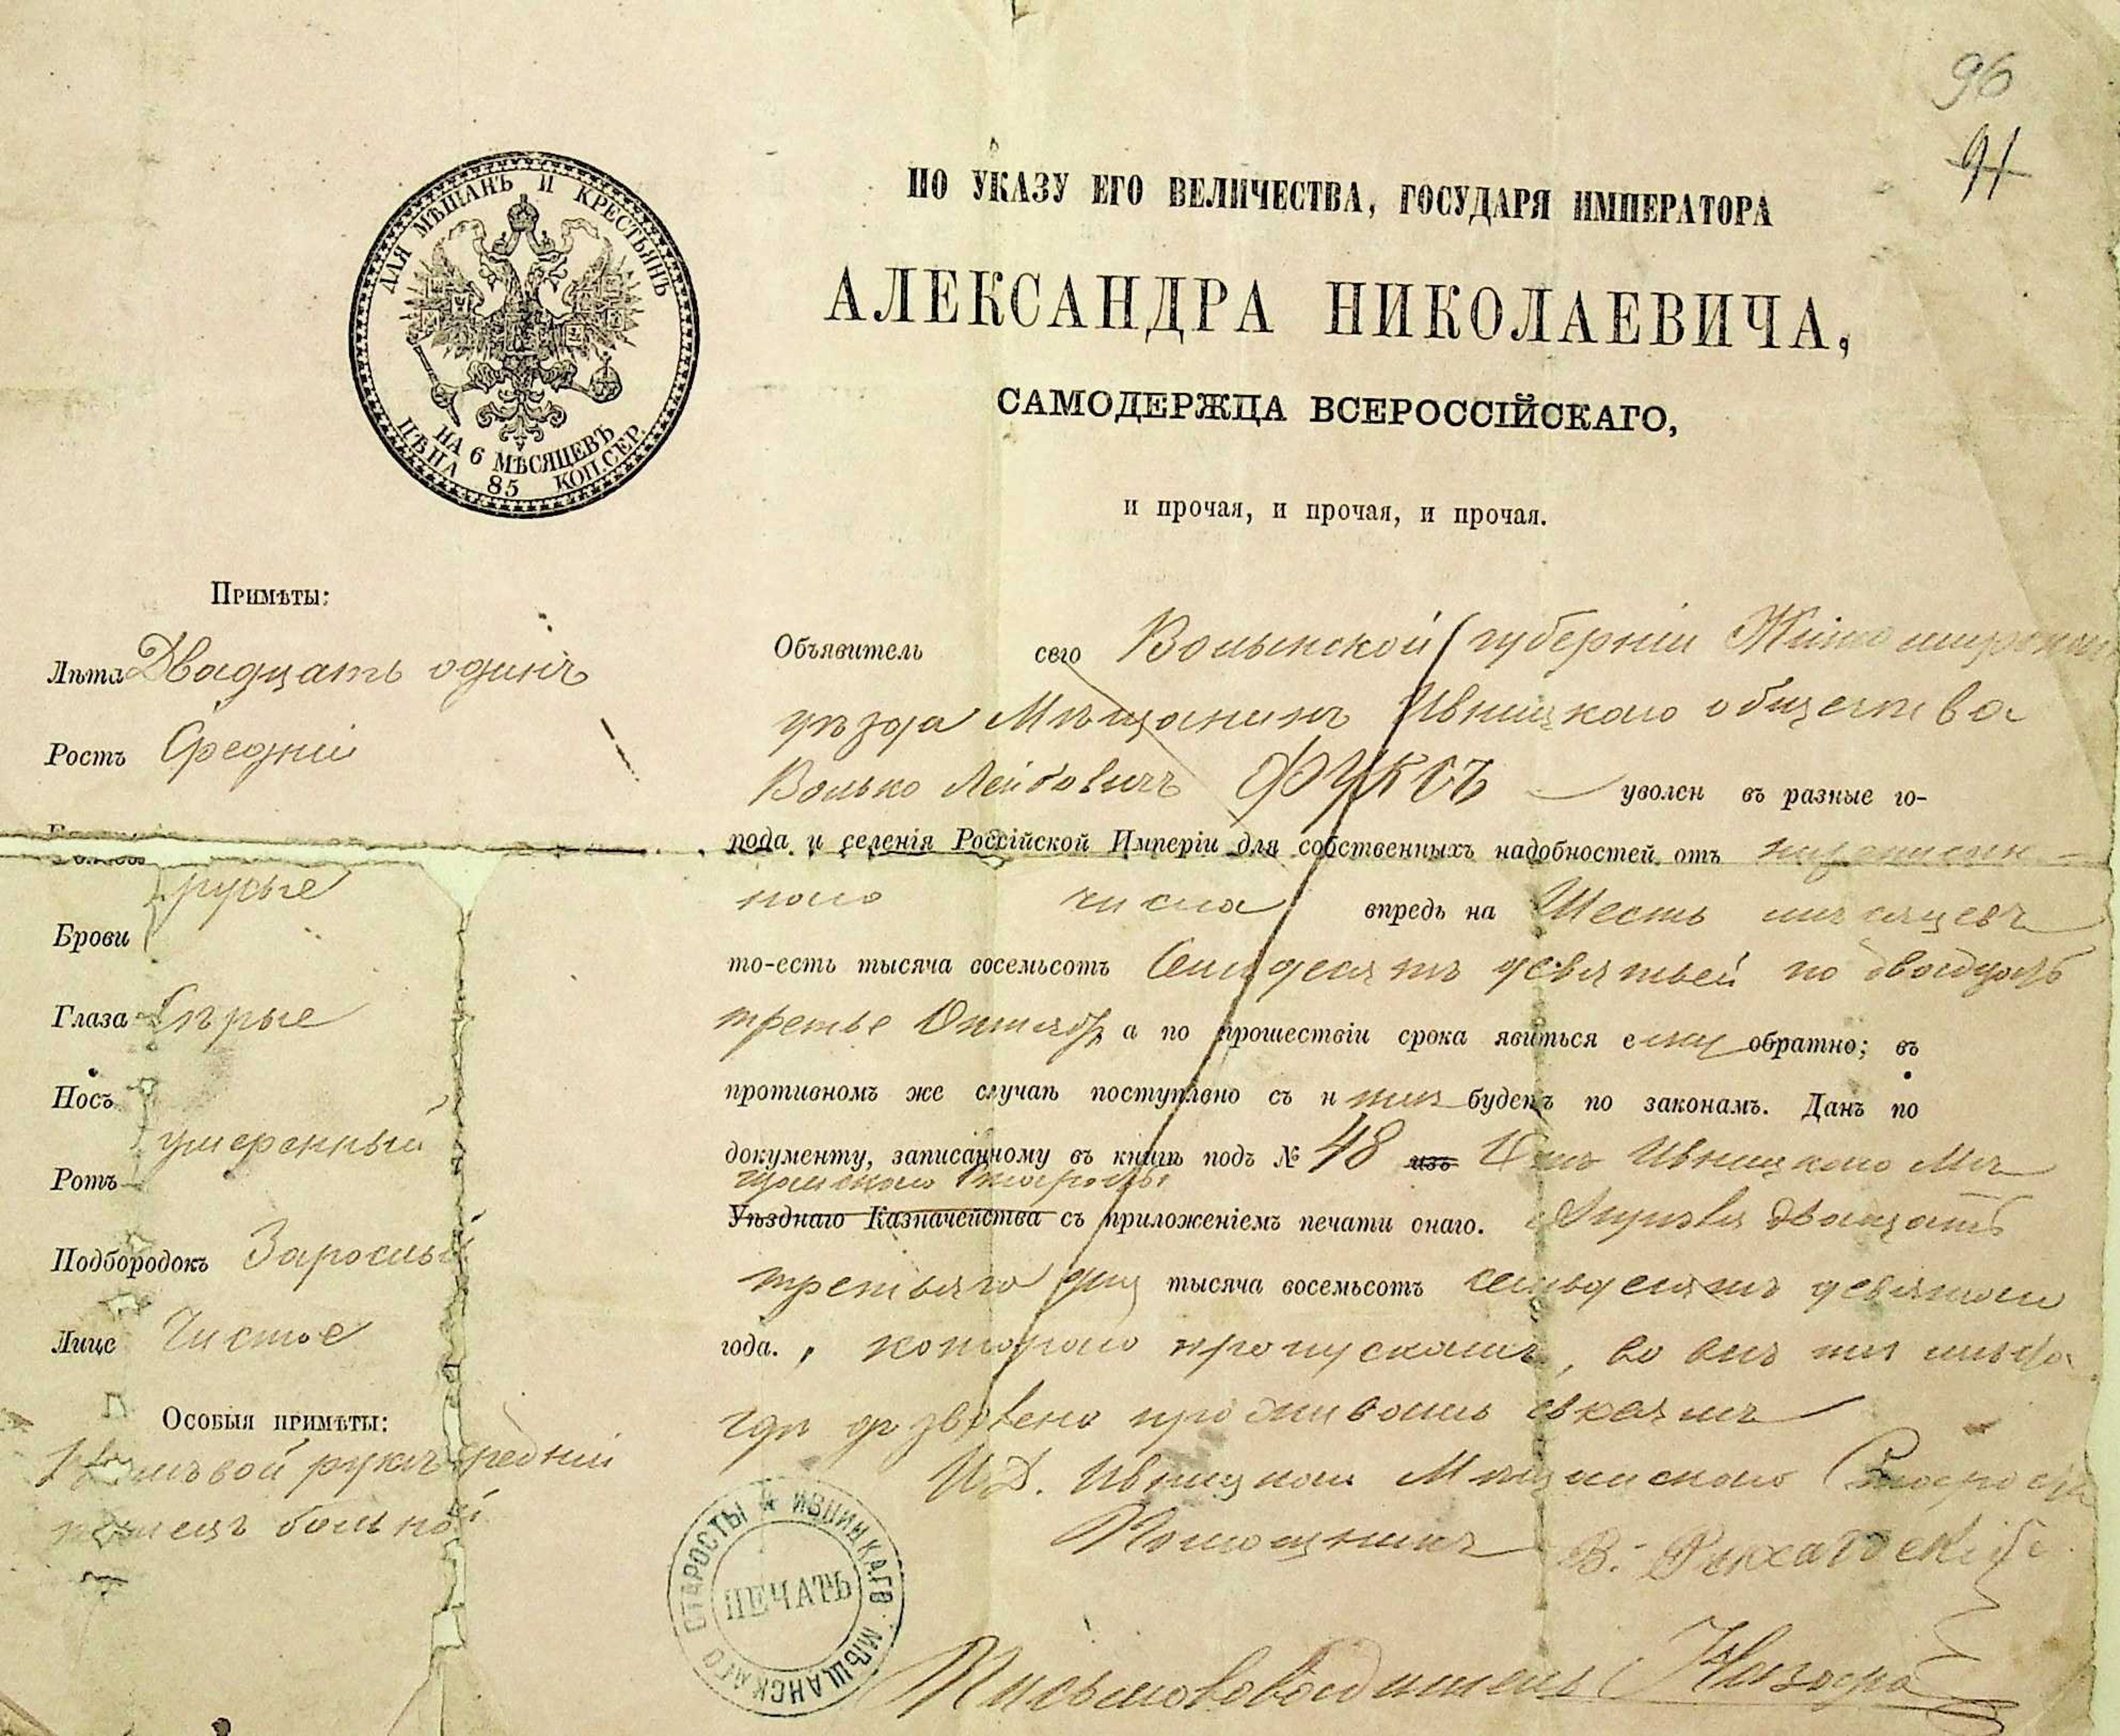 96
91
ДЛЯ МѢЩАНЪ И КРЕСТЬЯНЪ
НА 6 МѢСЯЦЕВЪ
ЦѢНА 85 КОП. СЕР.
ПО УКАЗУ ЕГО ВЕЛИЧЕСТВА, ГОСУДАРЯ ИМПЕРАТОРА
АЛЕКСАНДРА НИКОЛАЕВИЧА,
САМОДЕРЖЦА ВСЕРОССІЙСКАГО,
и прочая, и прочая, и прочая.
Примѣты:
Лѣта Двадцать одинъ
Ростъ Средній
русые
Брови
Глаза Сѣрые
Носъ
умеренный
Ротъ
Подбородокъ Зарослый
Лице Чистое
Особыя примѣты:
лѣвой рукѣ средній
палецъ больной
Объявитель сего Волынской губерніи Житомирскаго
уѣзда Мѣщанинъ Ивницкаго общества
Волько Лейбовичъ ФУКСЪ уволен въ разные го-
рода и селенія Россійской Имперіи для собственныхъ надобностей отъ нижеписан-
наго числа впредь на Шесть мѣсяцевъ
то-есть тысяча восемьсотъ Семдесятъ девятый по двадцать
третье Октября а по прошествіи срока явиться ему обратно; въ
противномъ же случаѣ поступлено съ нимъ будетъ по законамъ. Данъ по
документу, записанному въ книгѣ подъ № 48 изъ Отъ Ивницкаго Мѣ
щанскаго Старосты
Уѣзднаго Казначейства съ приложеніемъ печати онаго. Апрѣля двадцать
третьяго дня тысяча восемьсотъ семьдесятъ девятаго
года. , котораго пропускать, во всѣ тѣ мѣста
гдѣ дозволено проживать евреямъ
И.Д. Ивницкаго Мѣщанскаго Старосты
Помощникъ В.
Письмоводитель
СТАРОСТЫ ИВНИЦКАГО МѢЩАНСКАГО
ПЕЧАТЬ